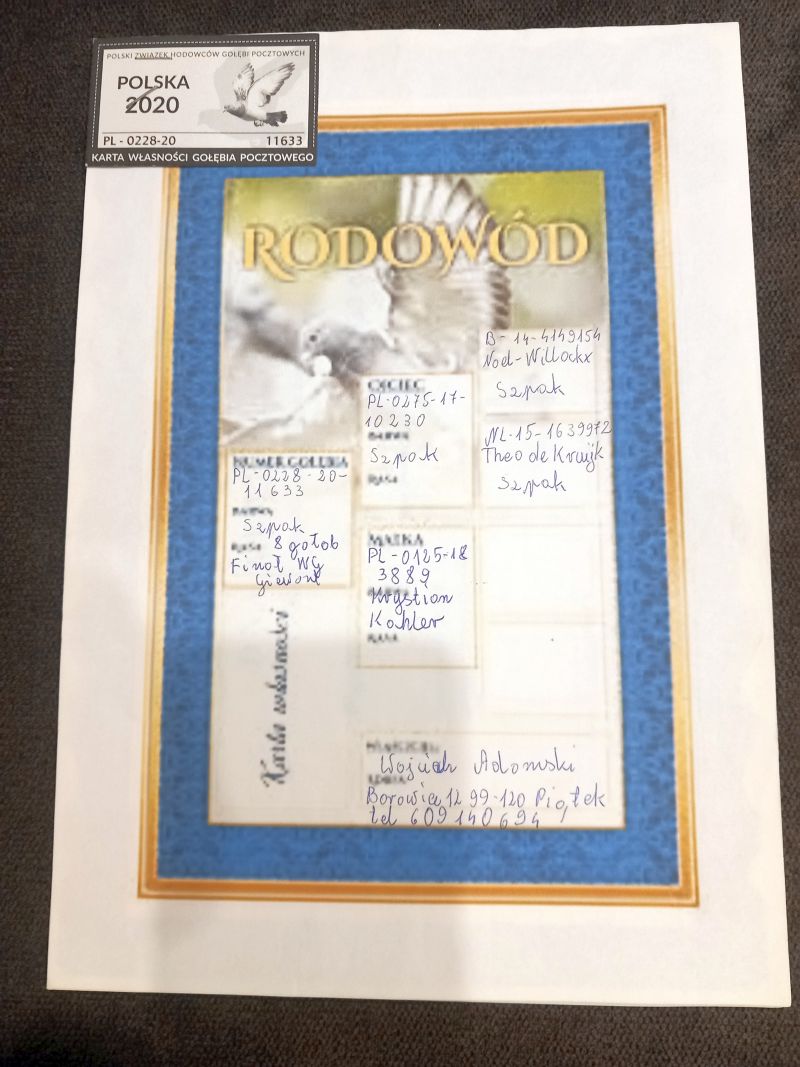 POLSKI ZWIĄZEK HODOWCÓW GOŁĘBI POCZTOWYCH
POLSKA
2020
PL - 0228-20 11633
KARTA WŁASNOŚCI GOŁĘBIA POCZTOWEGO
RODOWÓD
B-14-4149154
Noel-Willockx
Szpak
OJCIEC
PL-0275-17-
10230
BARWA
Szpak
RASA
NL-15-1639972
Theo de Kruijk
Szpak
NUMER GOŁĘBIA
PL-0228-20-
11633
BARWA
Szpak
RASA 8 gołob
Finoł WG
Giewont
MATKA
PL-0125-18
3889
Krystian
Kohler
RASA
Karta własności
WŁAŚCICIEL
Wojciech Adomski
Borowiec 12 99-120 Piątek
tel 609140694